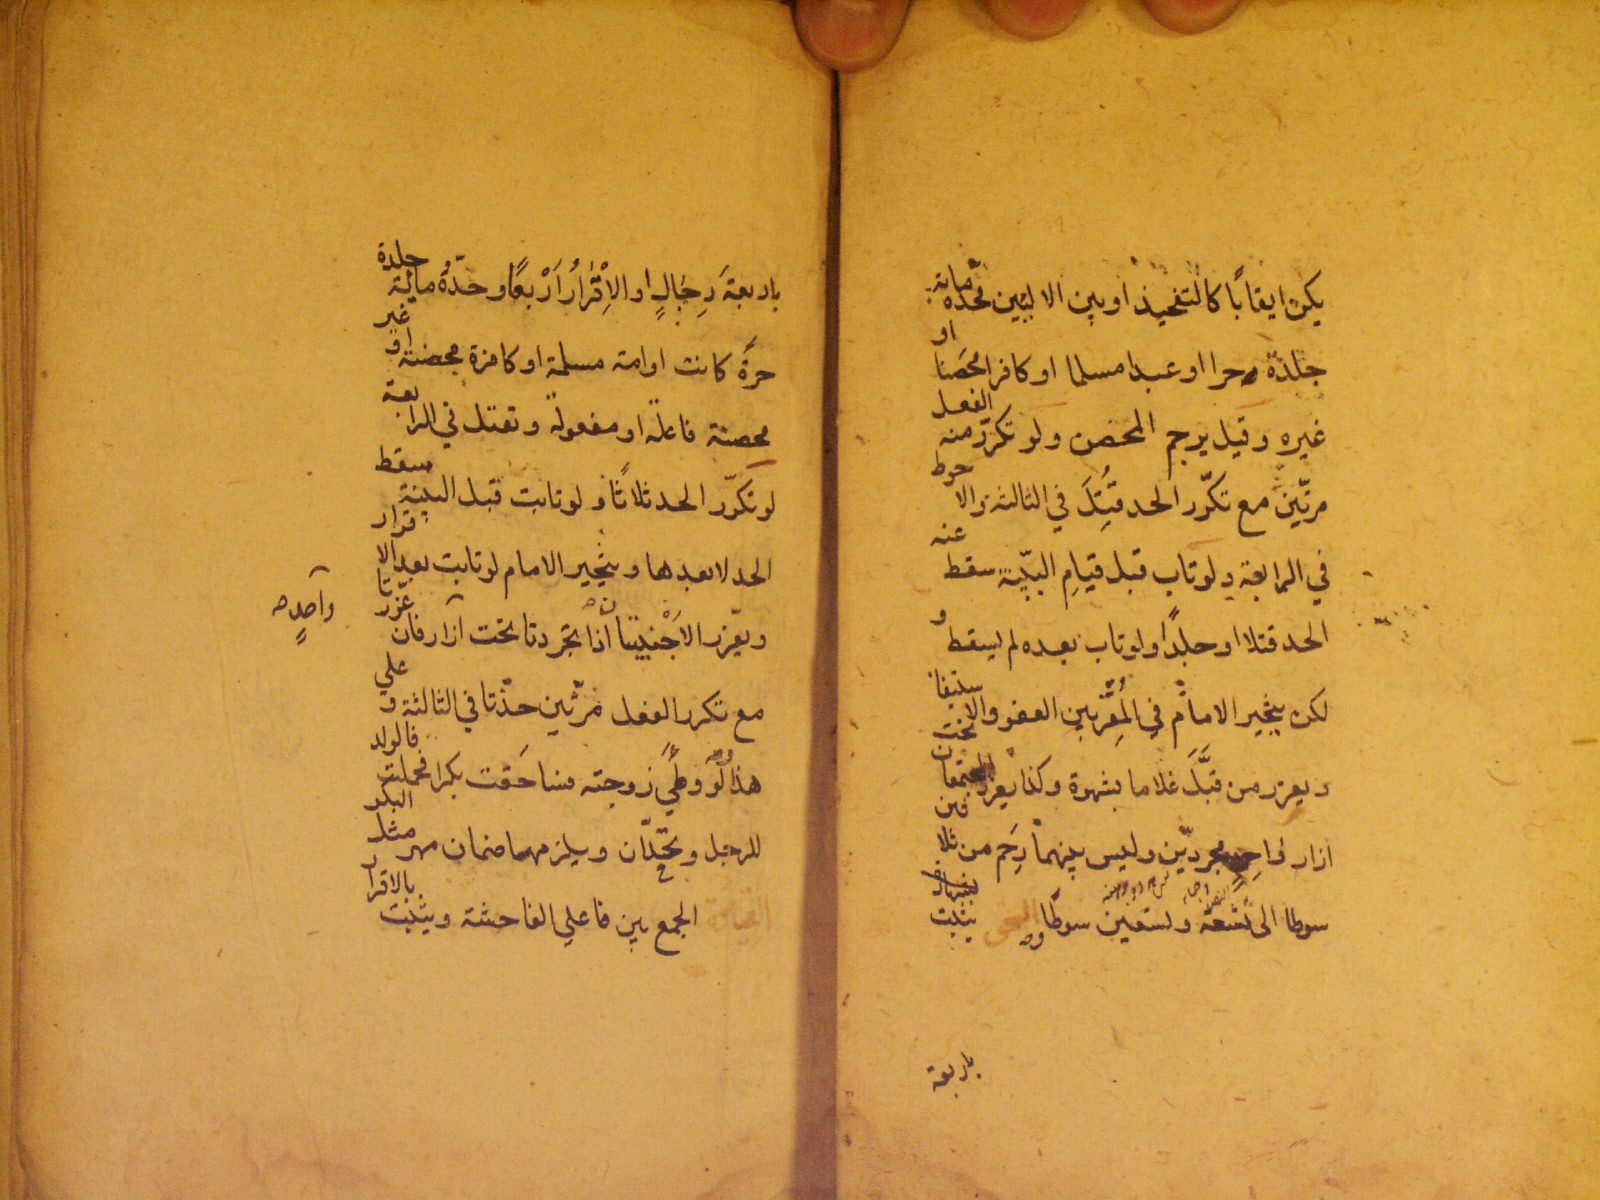 يكن ايقابا كالتفخيذ او بين الاليتين فحده مائة
جلدة حرا او عبدا مسلما او كافرا محصنا او
غيره وقيل يرجم المحصن ولو تكرر منه الفعل
مرتين مع تكرر الحد قُتِلَ في الثالثة والاحوط
في الرابعة ولو تاب قبل قيام البيّنة سقط عنه
الحد قتلا او جلدًا ولو تاب بعده لم يسقط و
لكن يتخير الامام في المُقِرّ بين العفو والاستيفا
ويعزر من قبَّلَ غلاما بشهوة وكذا يعزر المجتمعان تحت
ازار واحدٍ مجردين وليس بينهما رَحِم من ثلاثين
سوطا الى تسعة وتسعين سوطًا والسحق يثبت
باربعة
باربعة رِجالٍ او الاِقْرَارُ اَرْبعًا وحدّهُ ماية جلدة
حرةً كانت او امة مسلمة او كافرة محصنة او غير
محصنة فاعلة او مفعولة وتقتل في الرابعة
لو تكرّر الحد ثلاثًا ولو تابت قبل البينة سقط
الحد لا بعدها ويتخير الامام لو تابت بعد الاقرار
ويعزر الاَجْنبيتان اذا تجردتا تحت ازار فان عزّرتا
واحدٍ صح
مع تكرر الفعل مرّتين حدّتا في الثالثة وعلي
هذا لَو وطئَ زوجته فساحَقت بكرا فحملت فالولد
للرجل وتحدّان ويلزمهما ضمان مهر مثل البكر
القيادة الجمع بين فاعلي الفاحشة ويثبت بالاقرار